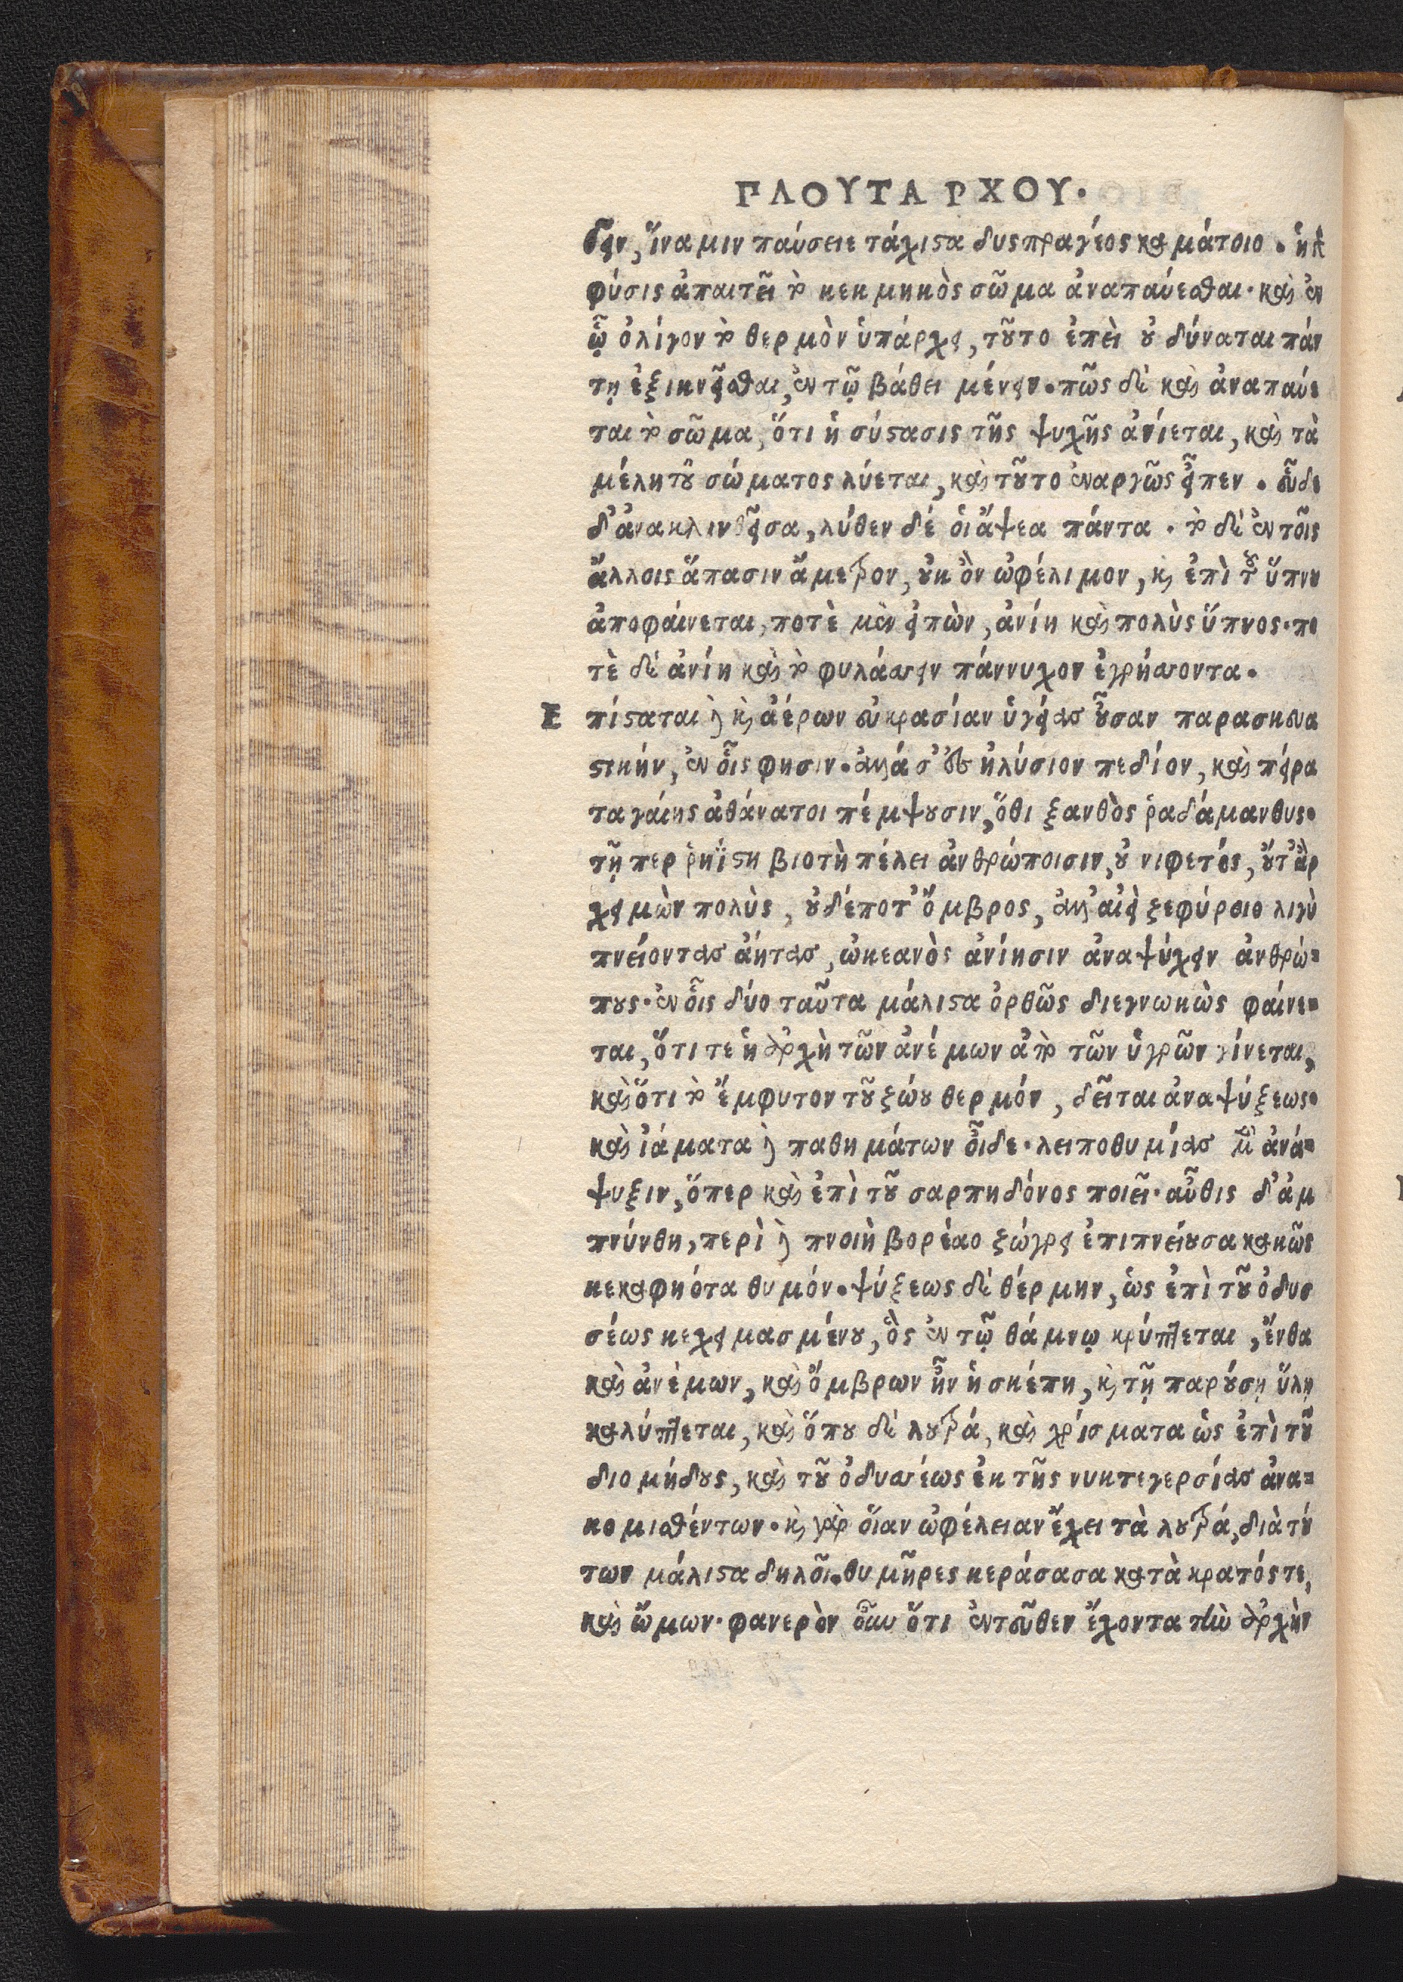 ΠΛΟΥΤΑΡΧΟΥ.
δειν, ἵνα μιν παύσειε τάχιστα δυσπραγέος καμάτοιο. ἡ
φύσις ἀπαιτεῖ τὸ κεκμηκὸς σῶμα ἀναπαύεσθαι. καὶ ἐν
ᾧ ὀλίγον τὸ θερμὸν ὑπάρχει, τοῦτο ἐπεὶ οὐ δύναται πάν
τῃ ἐξικνεῖσθαι, ἐν τῷ βάθει μένειν. πῶς δὲ καὶ ἀναπαύε
ται τὸ σῶμα, ὅτι ἡ σύστασις τῆς ψυχῆς ἀνίεται, καὶ τὰ
μέλη τοῦ σώματος λύεται, καὶ τοῦτο ἐναργῶς εἶπεν. εὗδε
δ' ἀνακλινθεῖσα, λύθεν δέ οἱ ἅψεα πάντα. τὸ δὲ ἐν τοῖς
ἄλλοις ἅπασιν ἄμετρον, οὐκ ὂν ὠφέλιμον, καὶ ἐπὶ τοῦ ὕπνου
ἀποφαίνεται, ποτὲ μὲν εἰπὼν, ἀνίη καὶ πολὺς ὕπνος. πο
τὲ δὲ ἀνίη καὶ τὸ φυλάσσειν πάννυχον ἐγρήσσοντα.
Ε πίσταται δὲ καὶ ἀέρων εὐκρασίαν ὑγείας οὖσαν παρασκευα
στικήν, ἐν οἷς φησιν. ἀλλά σ' ἐς ἠλύσιον πεδίον, καὶ πείρα
τα γαίης ἀθάνατοι πέμψουσιν, ὅθι ξανθὸς ῥαδάμανθυς.
τῇ περ ῥηΐστη βιοτὴ πέλει ἀνθρώποισιν, οὐ νιφετός, οὔτ' ἂρ
χειμὼν πολὺς, οὐδέποτ' ὄμβρος, ἀλλ' αἰεὶ ζεφύροιο λιγὺ
πνείοντας ἀήτας, ὠκεανὸς ἀνίησιν ἀναψύχειν ἀνθρώ-
πους. ἐν οἷς δύο ταῦτα μάλιστα ὀρθῶς διεγνωκὼς φαίνε-
ται, ὅτι τε ἡ ἀρχὴ τῶν ἀνέμων ἀπὸ τῶν ὑγρῶν γίνεται,
καὶ ὅτι τὸ ἔμφυτον τοῦ ζώου θερμόν, δεῖται ἀναψύξεως.
καὶ ἰάματα δὲ παθημάτων οἶδε. λειποθυμίας μὲν ἀνά-
ψυξιν, ὅπερ καὶ ἐπὶ τοῦ σαρπηδόνος ποιεῖ. αὖθις δ' ἀμ
πνύνθη, περὶ δὲ πνοιὴ βορέαο ζώγρει ἐπιπνείουσα κακῶς
κεκαφηότα θυμόν. ψύξεως δὲ θέρμην, ὡς ἐπὶ τοῦ ὀδυσ
σέως κεχειμασμένου, ὃς ἐν τῷ θάμνῳ κρύπτεται, ἔνθα
καὶ ἀνέμων, καὶ ὄμβρων ἦν ἡ σκέπη, καὶ τῇ παρούσῃ ὕλῃ
καλύπτεται, καὶ ὅπου δὲ λουτρά, καὶ χρίσματα ὡς ἐπὶ τοῦ
διομήδους, καὶ τοῦ ὀδυσσέως ἐκ τῆς νυκτεγερσίας ἀνα-
κομισθέντων. καὶ γὰρ οἵαν ὠφέλειαν ἔχει τὰ λουτρά, διὰ τού
των μάλιστα δηλοῖ. θυμῆρες κεράσασα κατὰ κρατός τε,
καὶ ὤμων. φανερὸν οὖν ὅτι ἐντεῦθεν ἔχοντα τὴν ἀρχὴν